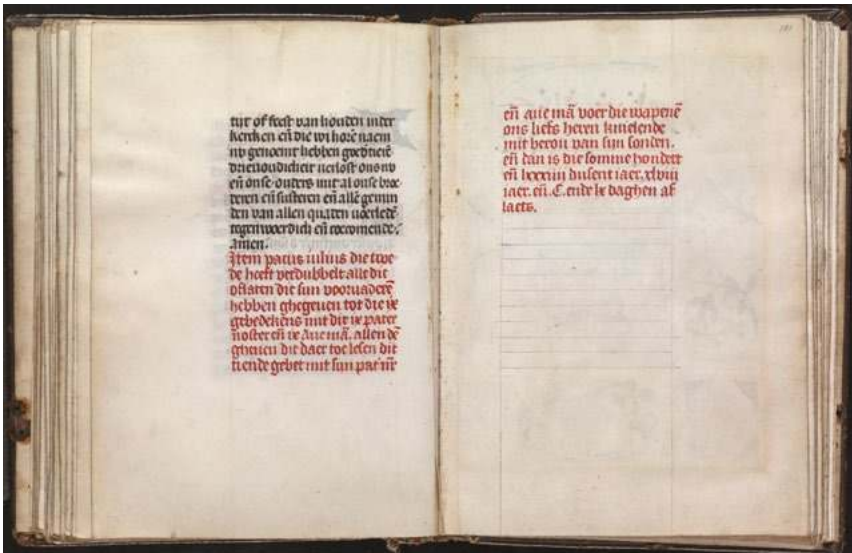 tijt of feest van houden inder
kercken en̄ die wi horē naem
nv genoemt hebben goedtierē
drievoudicheit verlost ons nv
en̄ onse ouders mit al onse broe
deren en̄ susteren en̄ allē gemin
den van allen quaden voerledē
tegenwoerdich en̄ toecomende.
amen.
Item paeus iulius die twe
de heeft verdubbelt alle dit
oflaten die sijn voorvaderē
hebben ghegeven tot die ix
gebedekens mit dit ix pater
noster en̄ ix Aue mā. allen dē
gheuen dit daer toe lesen dit
tiende gebet mit sijn pat nr̄
181
en̄ aue mā voer die wapenē
ons liefs heren knielende
mit berou van sijn sonden.
en̄ dan is die somme hondert
en̄ lxxxiii dusent iaer. xlviii
iaer. en̄ .C. ende ix daghen af
laets.